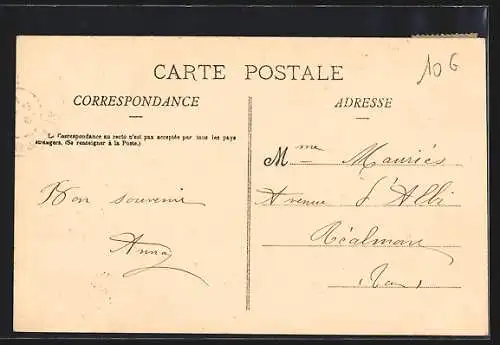 10 G
CARTE POSTALE
CORRESPONDANCE
ADRESSE
La Correspondance au recto n'est pas acceptée par tous les pays
étrangers. (Se renseigner à la Poste.)
Mme Mauriès
Avenue d'Albi
Réalmont
(Tarn)
Bon souvenir
Anna